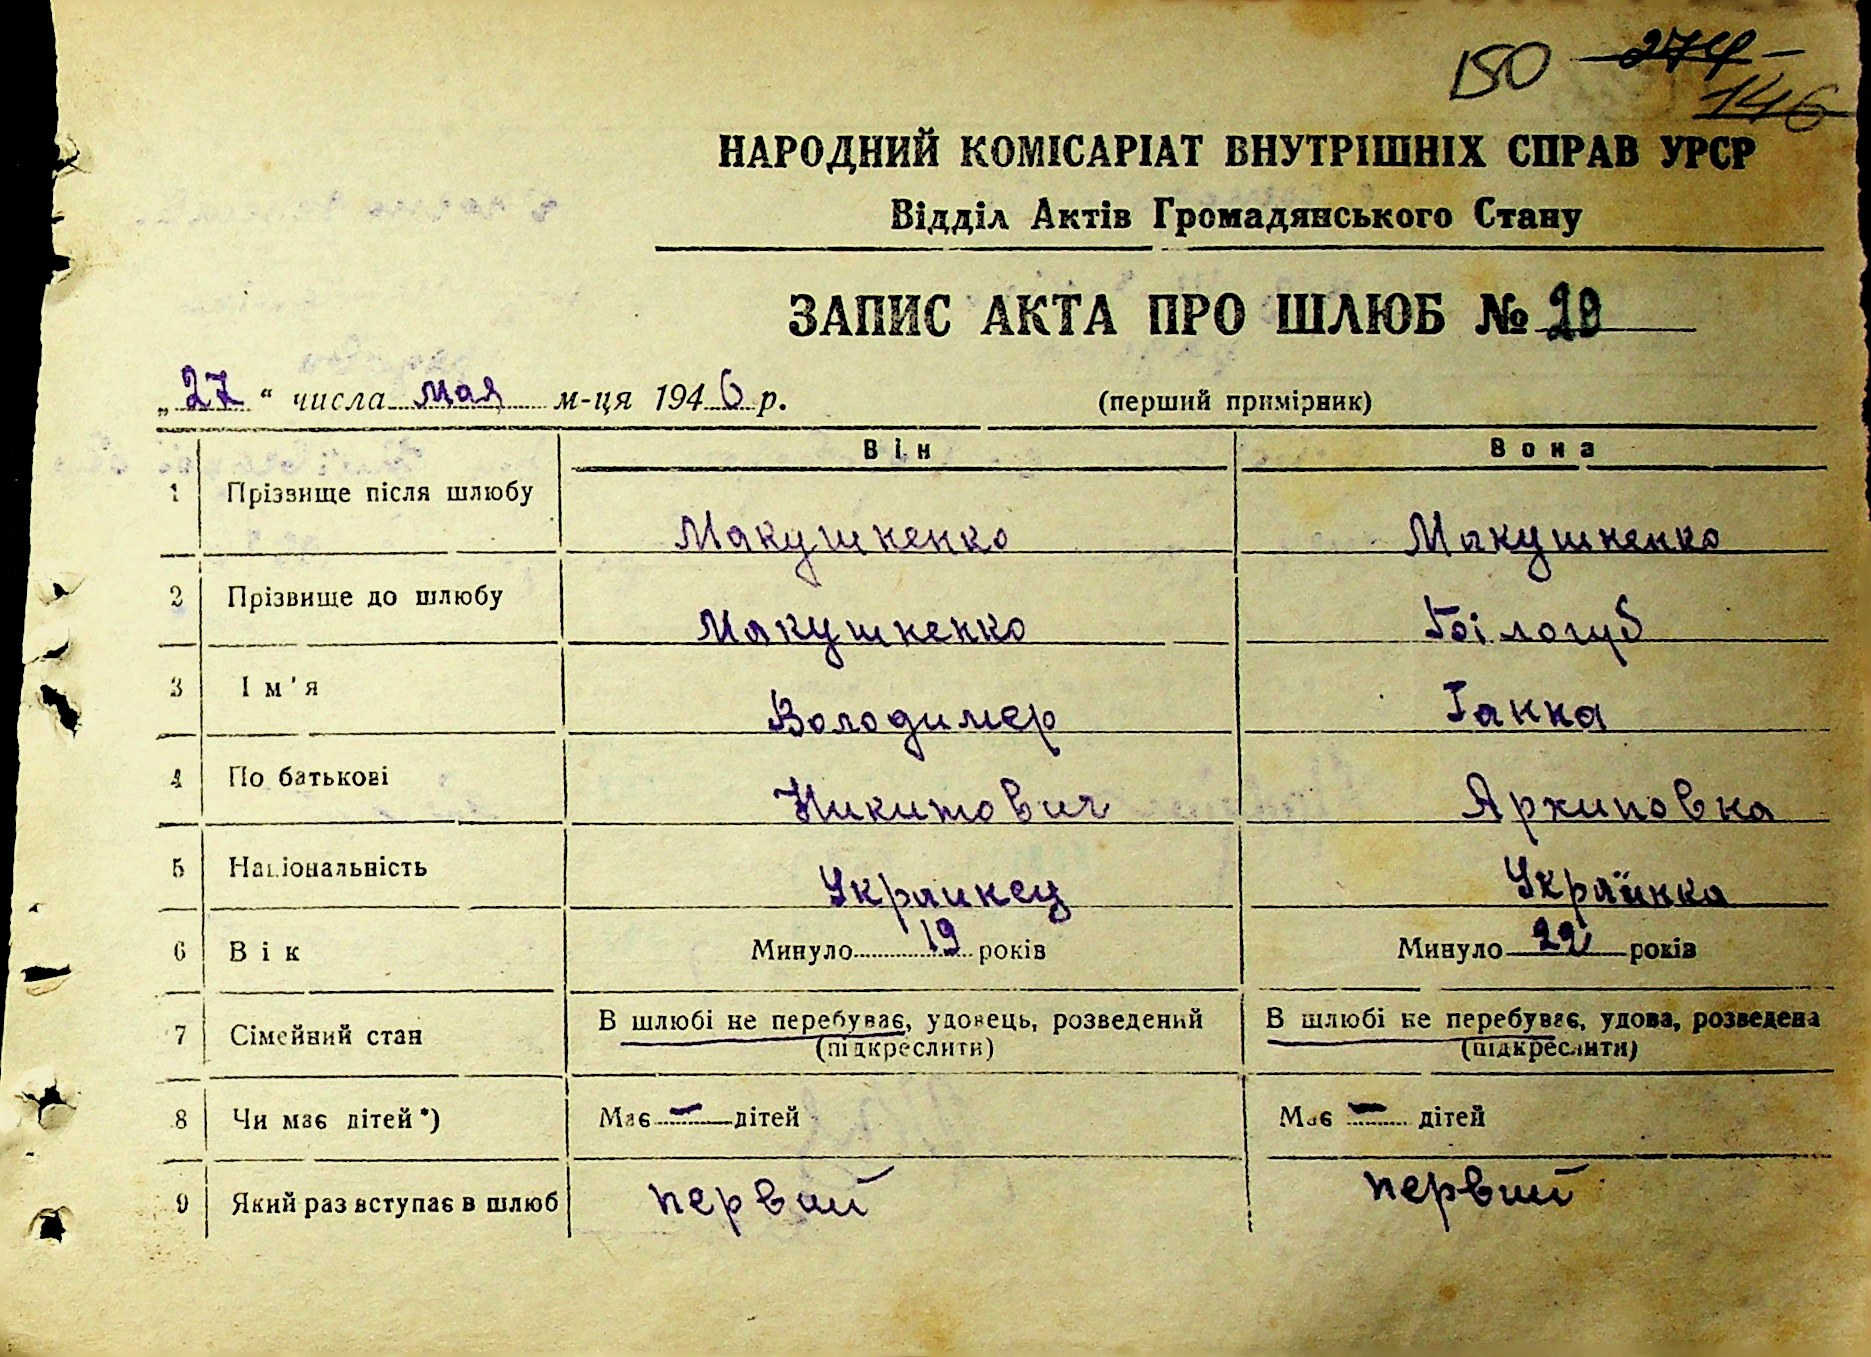 150 274
146
НАРОДНИЙ КОМІСАРІАТ ВНУТРІШНІХ СПРАВ УРСР
Відділ Актів Громадянського Стану
ЗАПИС АКТА ПРО ШЛЮБ № 20
„27“ числа мая м-ця 1946 р. (перший примірник)
Він Вона
1 Прізвище після шлюбу Макушненко Макушненко
2 Прізвище до шлюбу Макушненко Білогуб
3 Ім'я Володимер Ганна
4 По батькові Никитович Архиповна
5 Національність Украинец Українка
6 Вік Минуло 19 років Минуло 22 років
7 Сімейний стан В шлюбі не перебуває, удовець, розведений В шлюбі не перебуває, удова, розведена
(підкреслити) (підкреслити)
8 Чи має дітей*) Має — дітей Має — дітей
9 Який раз вступає в шлюб первий первий